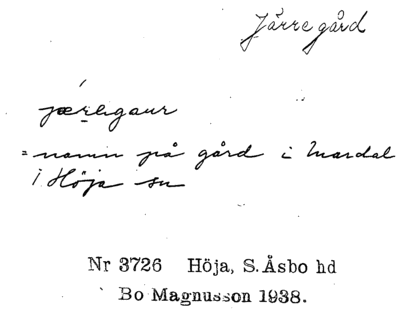 Järregård
jæregaur
= namn på gård i Mardal
i Höja sn
Nr 3726 Höja, S. Åsbo hd
Bo Magnusson 1938.